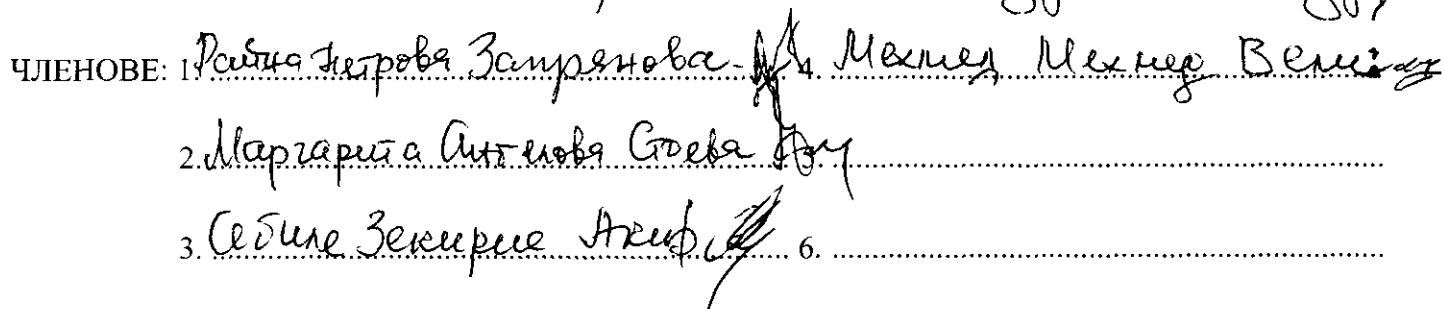 ЧЛЕНОВЕ: 1. Райна Петрова Запрянова 4. Мехмед Мехмед Вели
2. Маргарита Ангелова Стоева 5.
3. Себиле Зекирие Акиф 6.